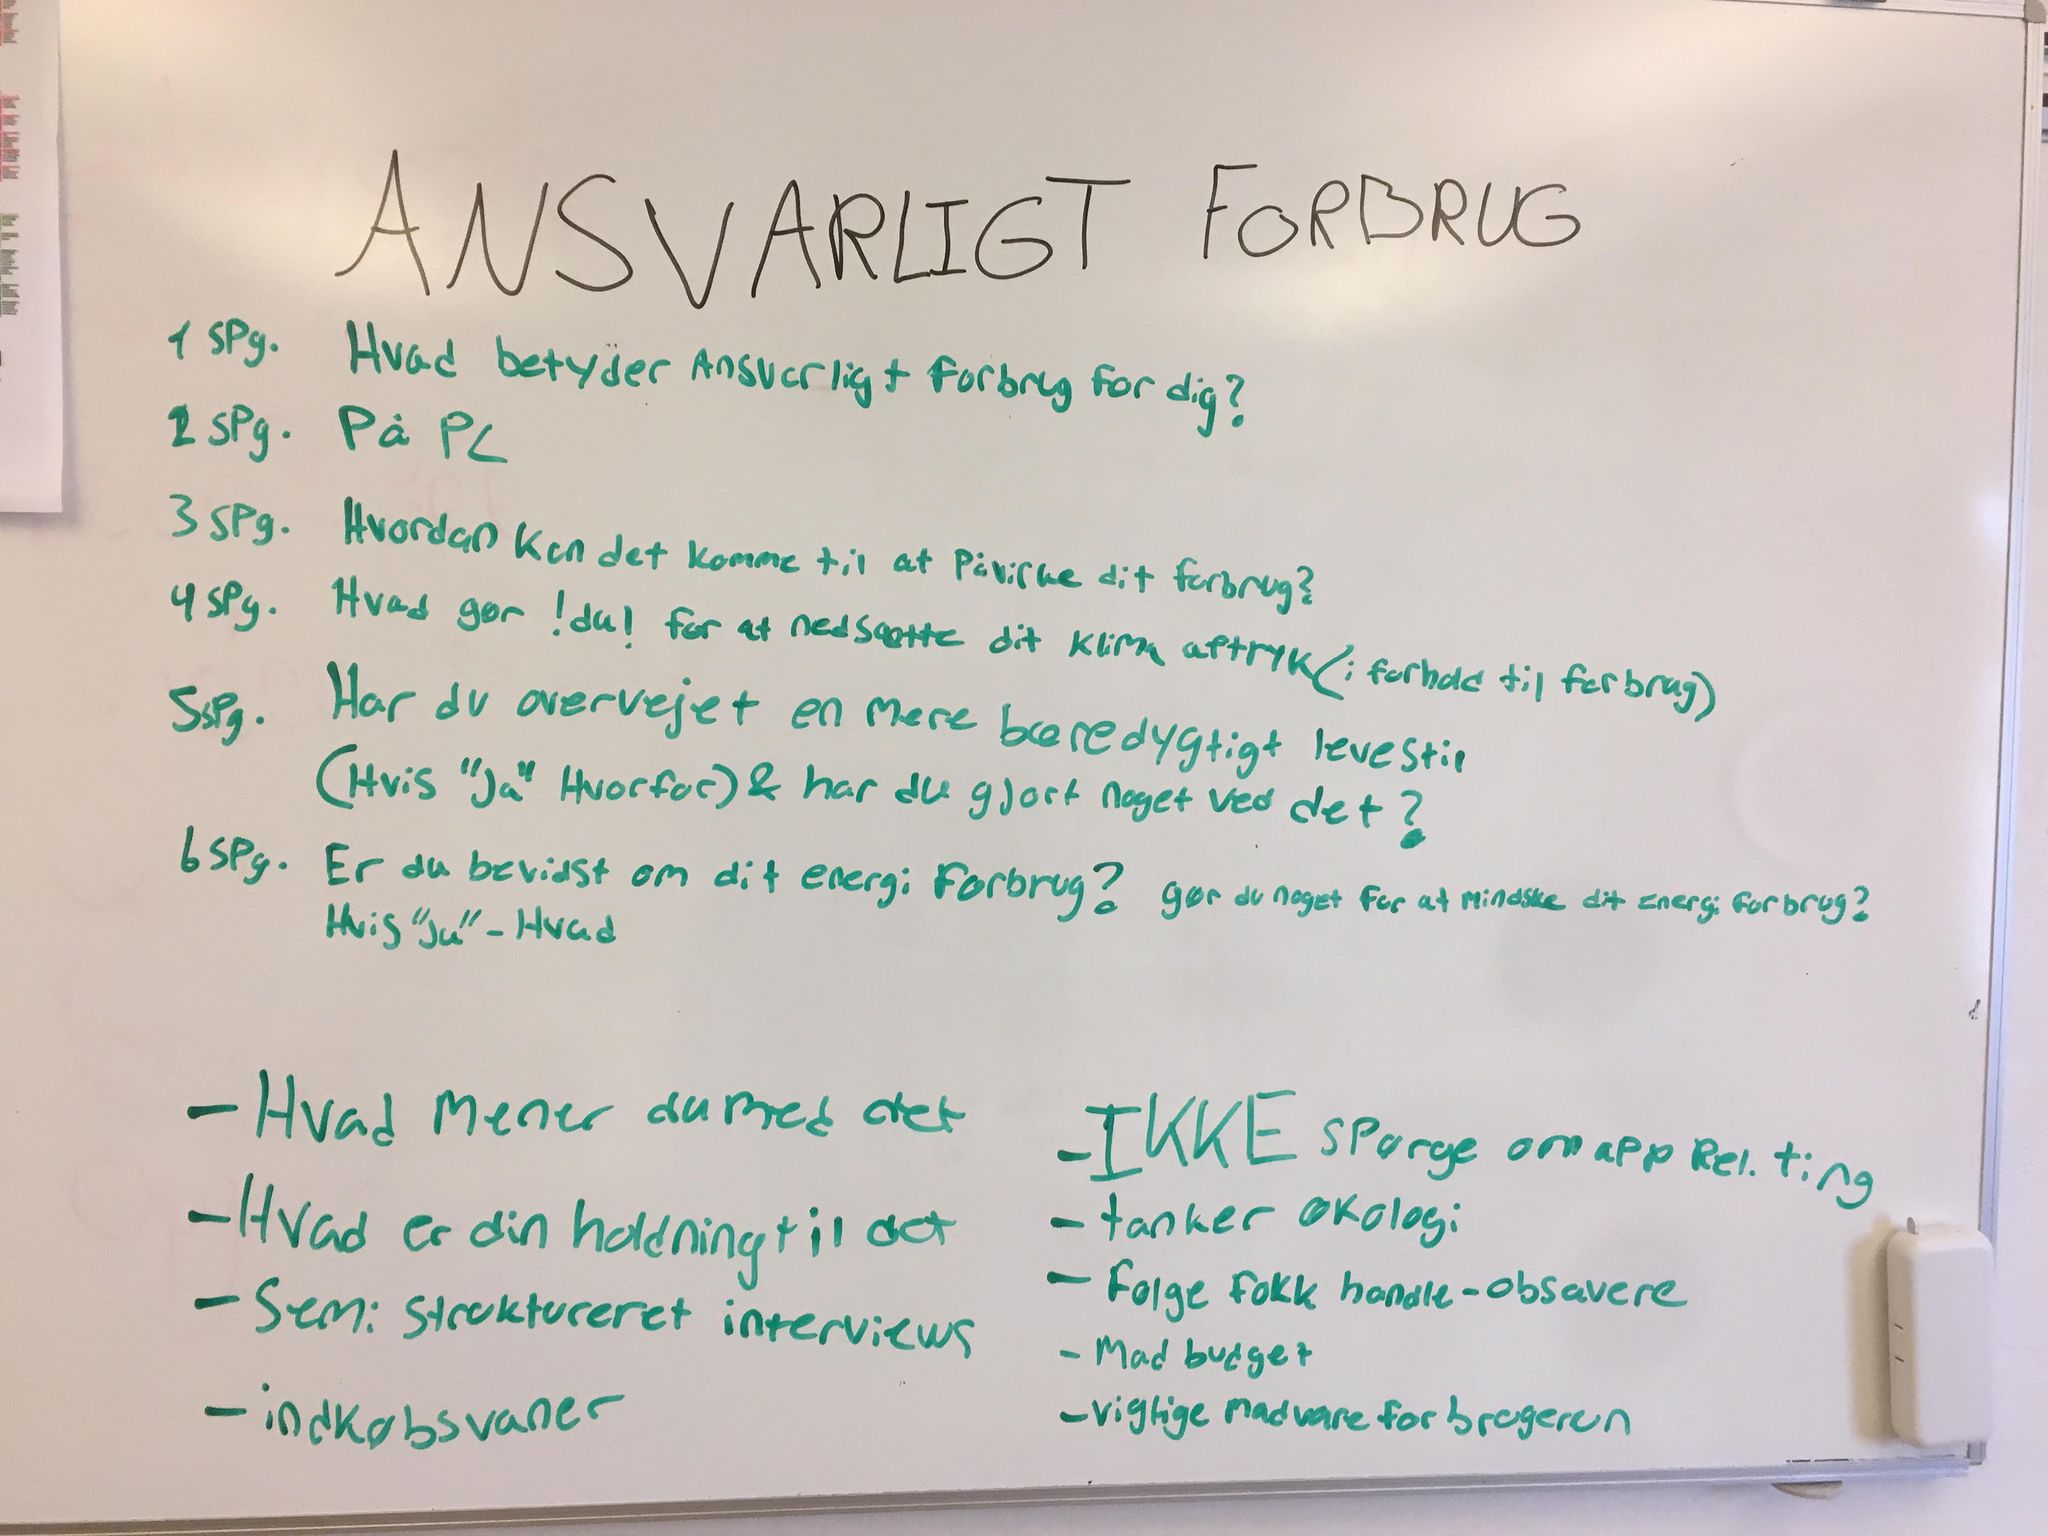 ANSVARLIGT FORBRUG
1 SPg. Hvad betyder Ansvarligt Forbrug for dig?
2 SPg. På PC
3 SPg. Hvordan kan det komme til at Påvirke dit forbrug?
4 SPg. Hvad gør !du! for at nedsætte dit klima aftryk (i forhold til forbrug)
5 SPg. Har du overvejet en mere bæredygtigt levestil
(Hvis "Ja" Hvorfor) & har du gjort noget ved det?
6 SPg. Er du bevidst om dit energi Forbrug? gør du noget for at mindske dit Energi forbrug?
Hvis "Ja" - Hvad
- Hvad mener du med det
- Hvad er din holdning til det
- Semi struktureret interviews
- indkøbsvaner
- IKKE spørge om app Rel. ting
- tanker økologi
- Følge folk handle - obsavere
- Mad budget
- vigtige madvare forbrugeren